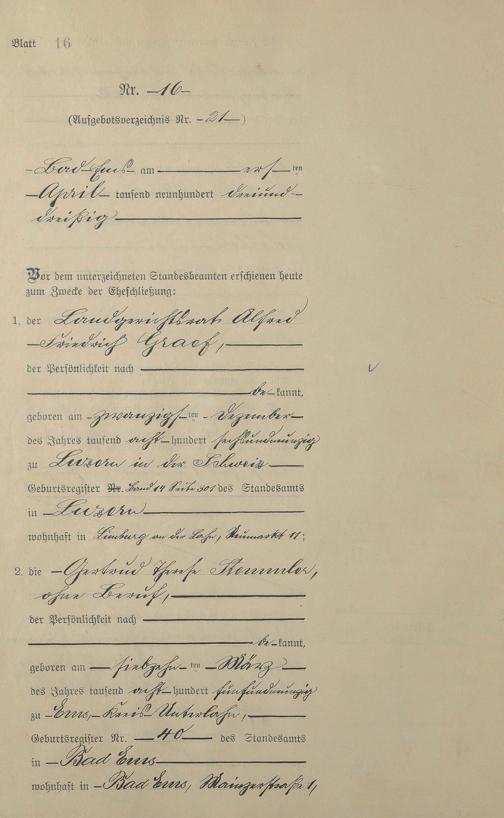 Blatt 16
Nr. 16
(Aufgebotsverzeichnis Nr. 21)
Bad Ems am ersten
April tausend neunhundert dreiund-
dreißig
Vor dem unterzeichneten Standesbeamten erschienen heute
zum Zwecke der Eheschließung:
1. der Landgerichtsrat Alfred
Friedrich Graef,
der Persönlichkeit nach
bekannt,
geboren am zwanzigsten Dezember
des Jahres tausend acht hundert sechsundneunzig
zu Luzern in der Schweiz
Geburtsregister Nr. Band 14 Seite 301 des Standesamts
in Luzern
wohnhaft in Limburg an der Lahn, Neumarkt 11;
2. die Gertrud Therese Stemmler,
ohne Beruf,
der Persönlichkeit nach
bekannt,
geboren am siebzehnten März
des Jahres tausend acht hundert fünfundneunzig
zu Ems, Kreis Unterlahn,
Geburtsregister Nr. 40 des Standesamts
in Bad Ems
wohnhaft in Bad Ems, Mainzerstraße 1,